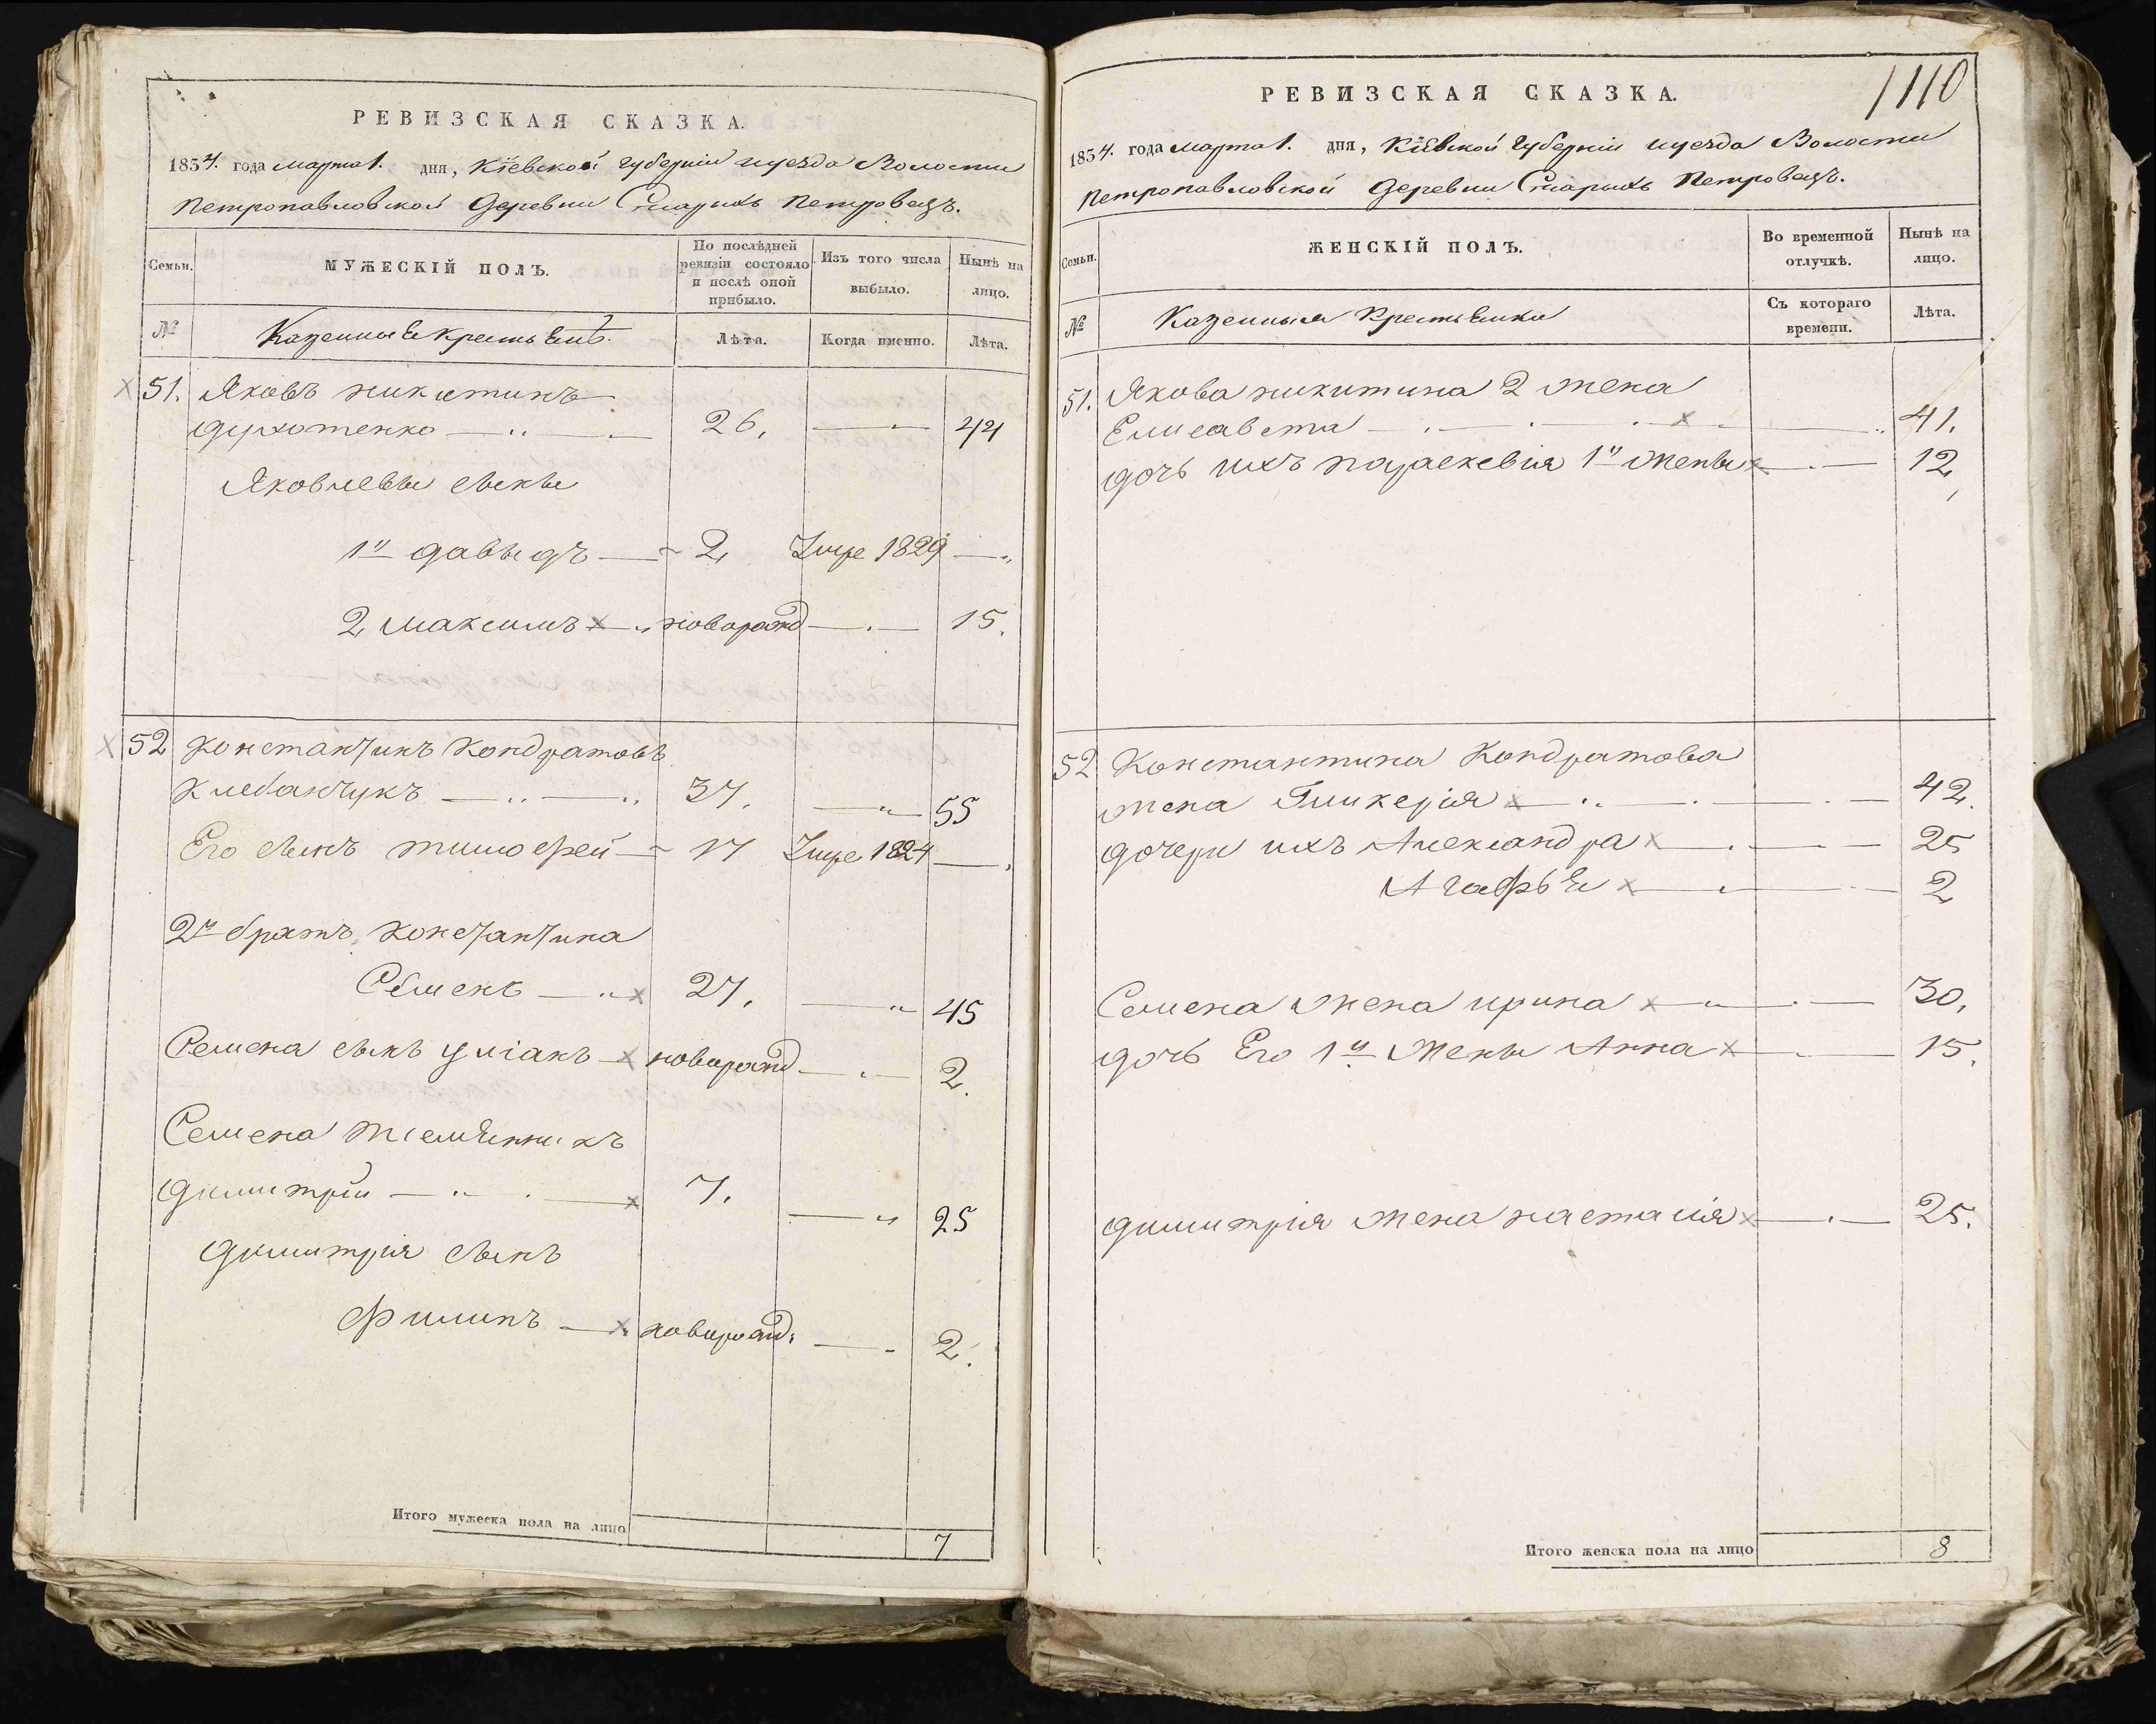 РЕВИЗСКАЯ СКАЗКА.
1834. года марта 1. дня, Кіевской Губерніи и уезда Волости
Петропавловской Деревни Старыхъ Петровецъ.
Семьи.
МУЖЕСКІЙ ПОЛЪ.
По послѣдней ревизіи состояло и послѣ оной прибыло.
Изъ того числа выбыло.
Нынѣ на лицо.
№
Казенные крестьяне.
Лѣта.
Когда именно.
Лѣта.
51. Яковъ никитинъ
26. 44
Яковлевы сыны
1й давыдъ 2 Умре 1829
2 максимъ новорожд 15.
52 Константинъ Кондратовъ
Клебанчукъ 37. 55
Его сынъ тимофей 17 Умре 1824
2й братъ Константина
Семенъ 27. 45
Семена сынъ уліанъ новорожд 2.
Семена племянникъ
димитрій 7. 25
димитрія сынъ
Филипъ новорожд: 2.
Итого мужеска пола на лицо 7
1110
РЕВИЗСКАЯ СКАЗКА.
1834. года марта 1. дня, Кіевской Губерніи и уезда Волости
Петропавловской Деревни Старыхъ Петровецъ.
Семьи.
ЖЕНСКІЙ ПОЛЪ.
Во временной отлучкѣ.
Нынѣ на лицо.
№
Казенныя Крестьянки
Съ котораго времени.
Лѣта.
51. Якова никитина 2 жена
Елисавета 41.
дочь ихъ параскевія 1й жены 12
52 Константина Кондратова
жена Гликерія 42.
дочери ихъ Александра 25
Агафья 2
Семена жена ирина 30.
дочь Его 1й жены Анна 15.
димитрія жена настасія 25.
Итого женска пола на лицо 8